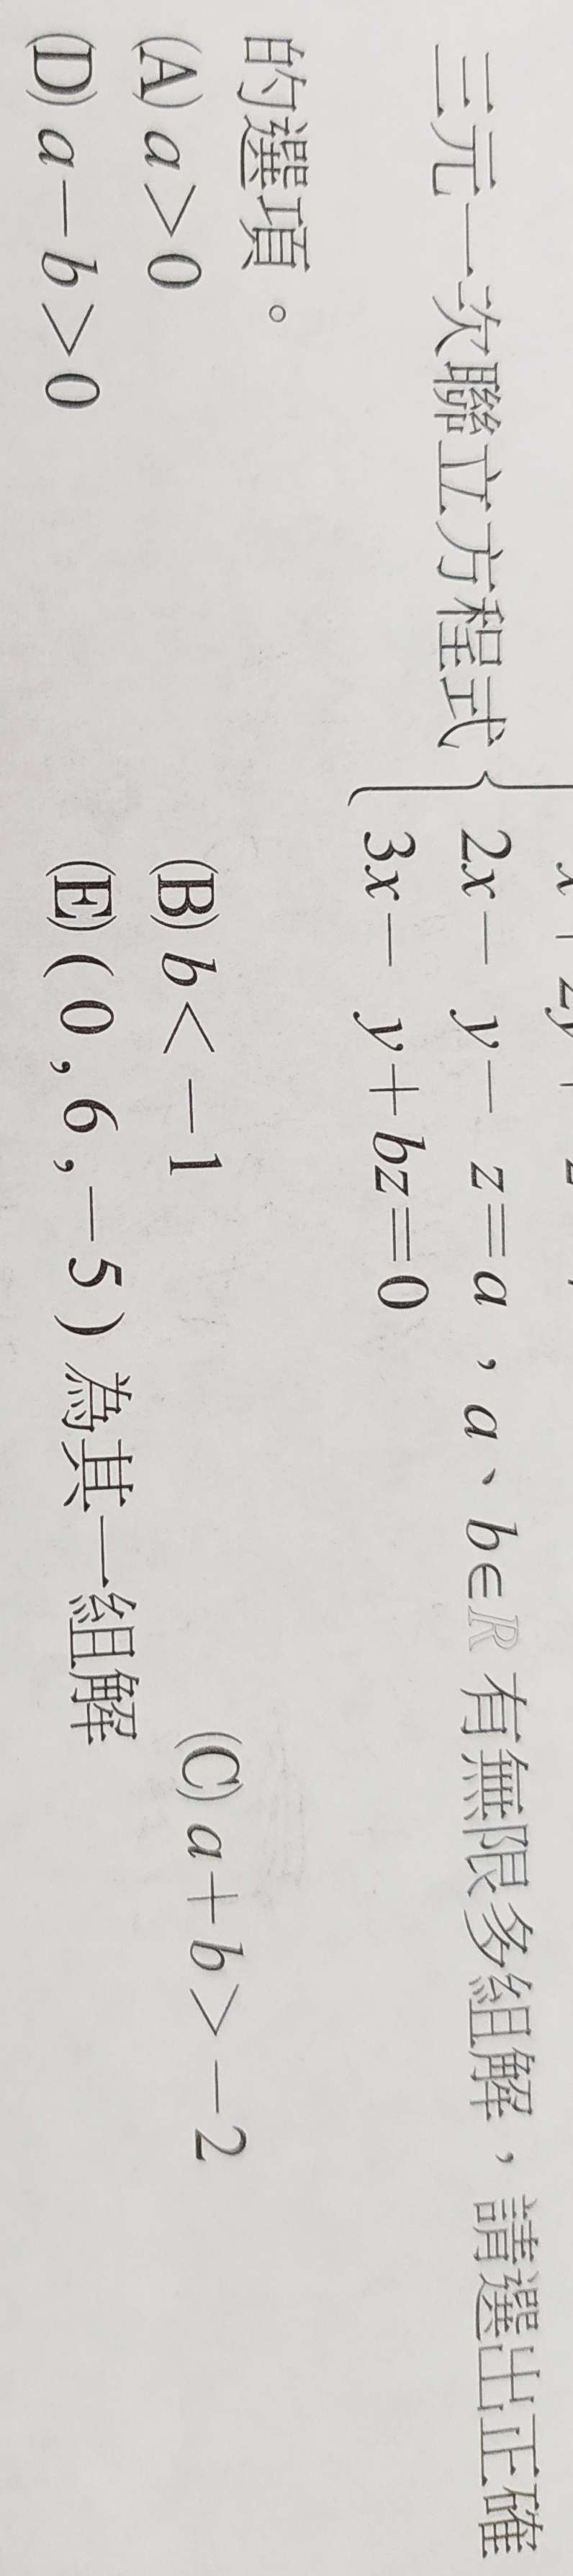 三元一次聯立方程式{2x－ y－ z＝a ，a、b∈ℝ 有無限多組解，請選出正確
3x－ y＋bz＝0
的選項。
(A) a＞0 (B) b＜－1 (C) a＋b＞－2
(D) a－b＞0 (E) ( 0 , 6 , －5 ) 為其一組解